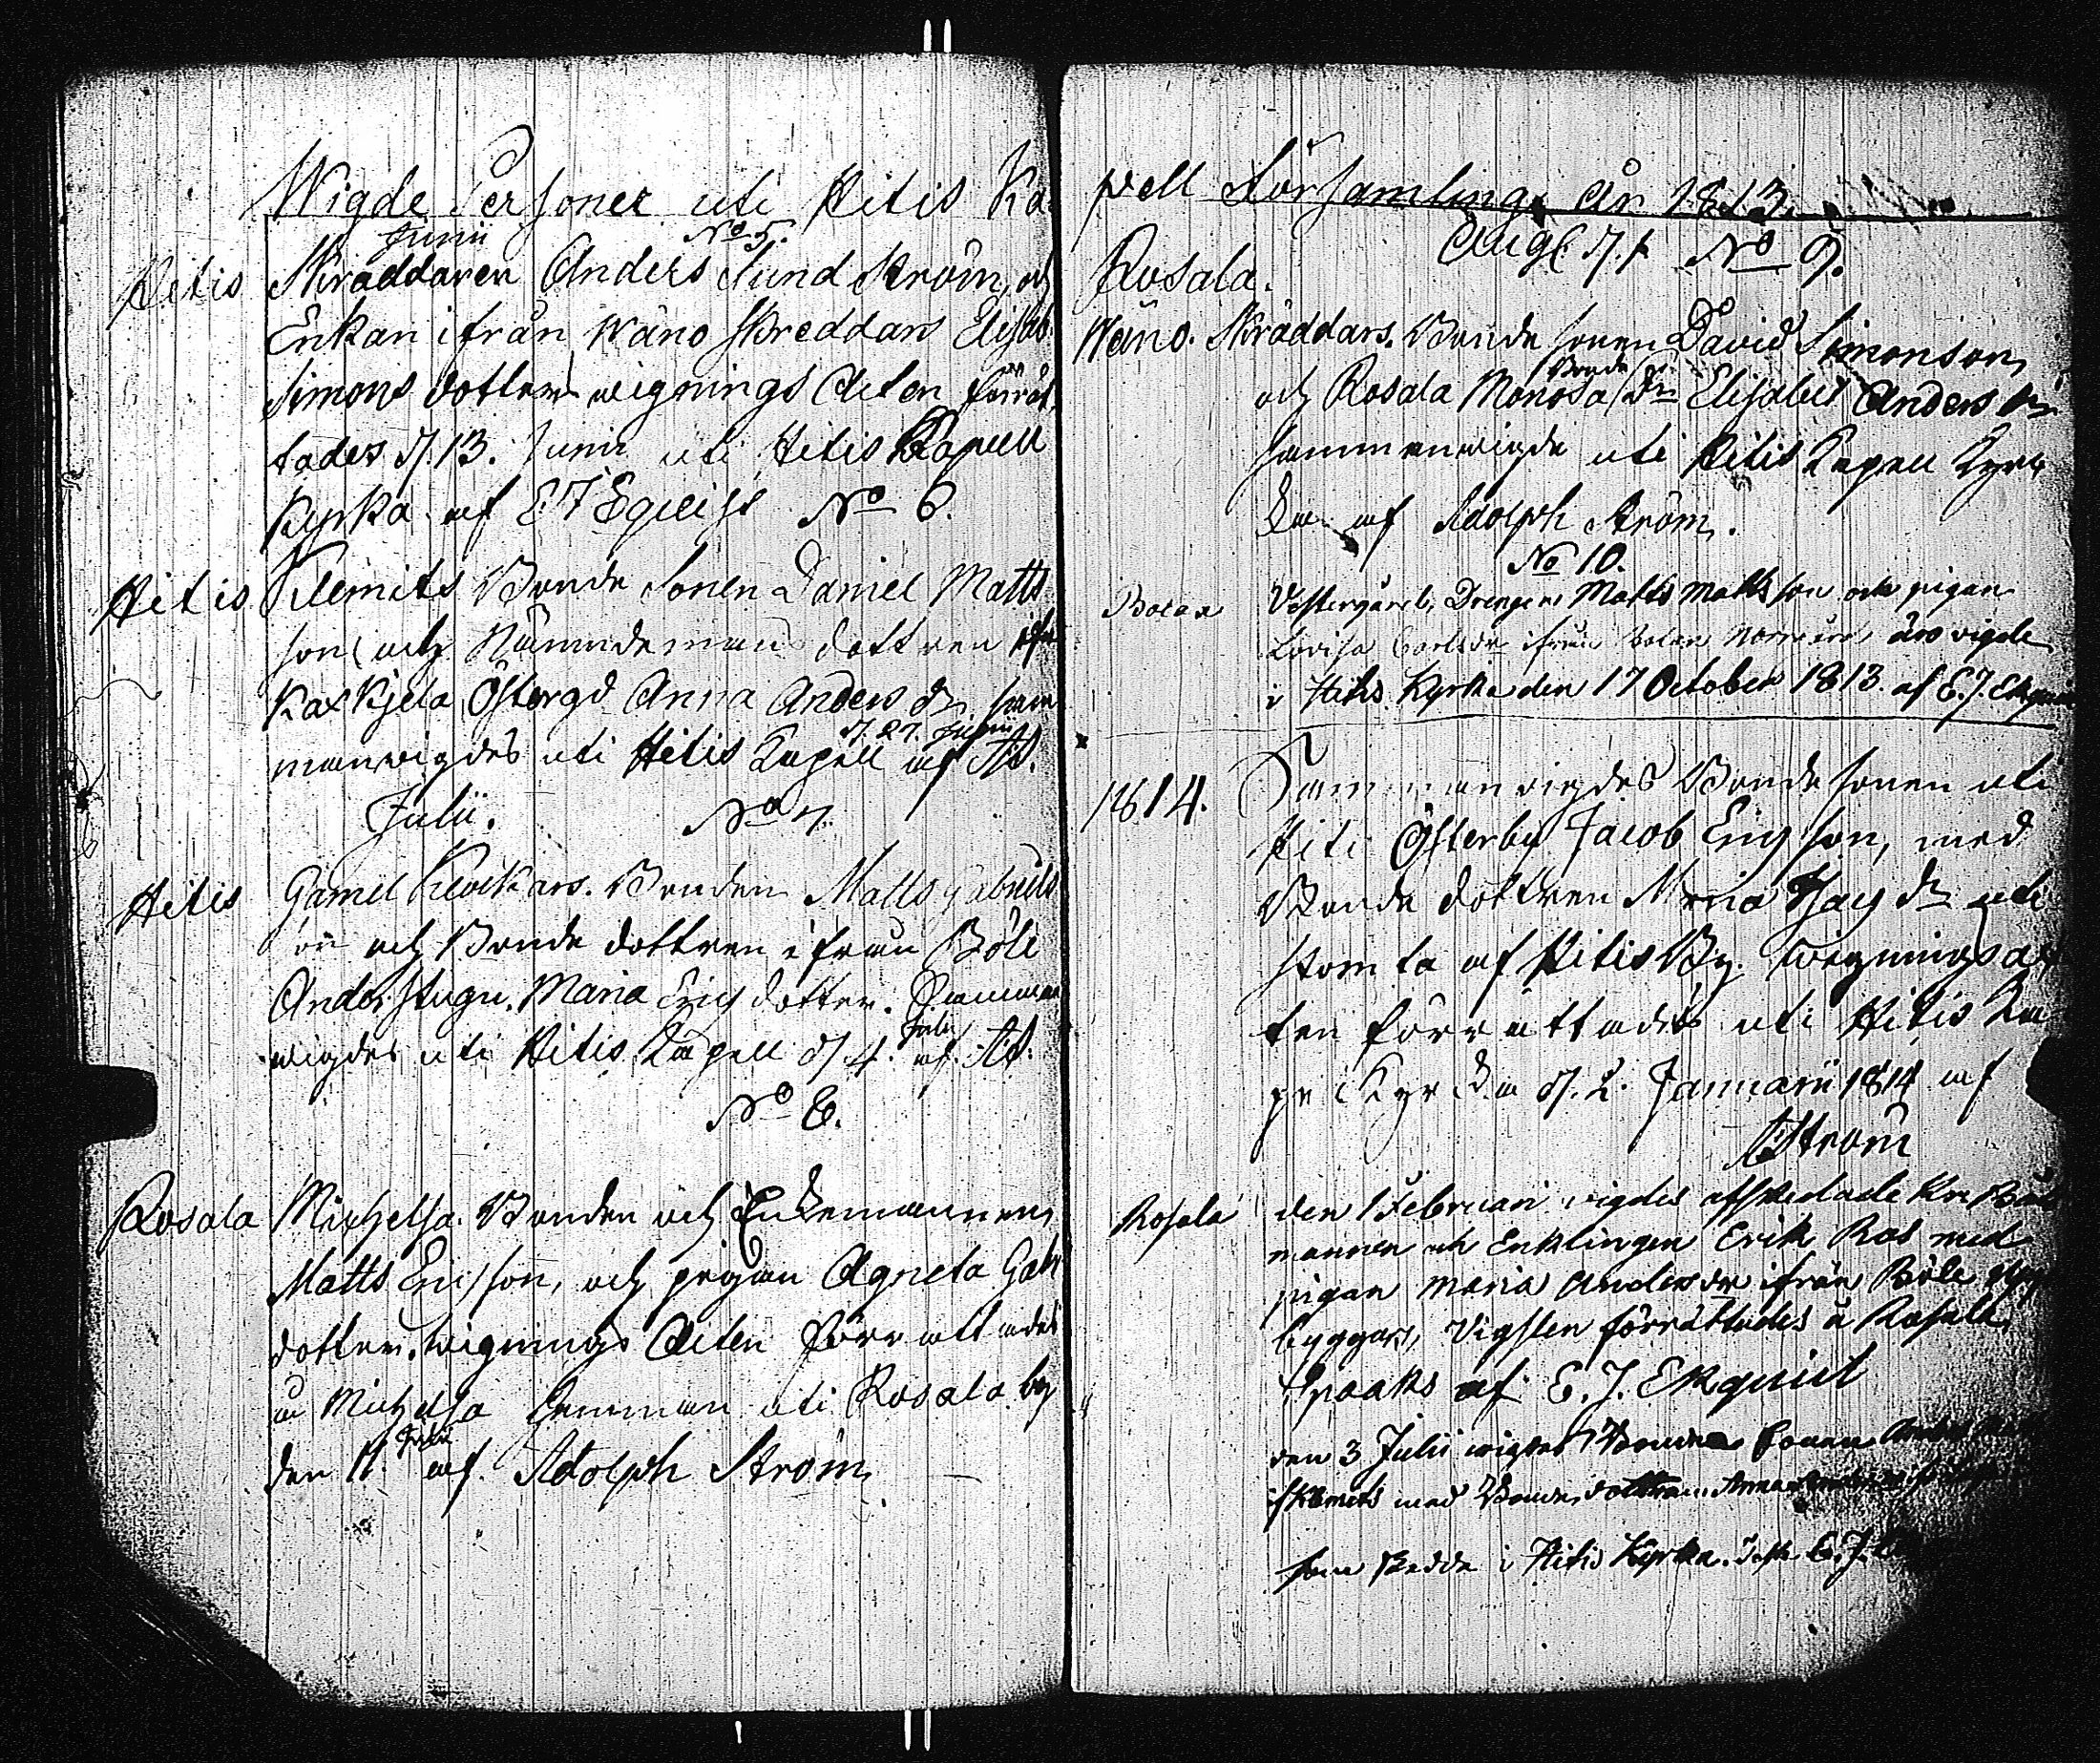 Wigde Personer uti Hitis Ka
Junii No 5.
Hitis Skräddaren Anders Sundström, och
Enkan ifrån Wäno Skreddars Elisab.
Simons dotter wignings Acten förrät
tades d. 13. Junii uti Hitis Kapell
Kyrka af E J Eqvist No 6.
Hitis Klemits Bonde Sonen Daniel Matts
son och Nämndemans dottren ifr
Kaxkjela Östergd Anna Anders dr sam
d. 27. Junii
manvigdes uti Hitis Kapell af AS.
Julii. No 7.
Hitis Gamel Klockars. Bonden Matts Gabriels
on och Bonde dottren ifrån Böle
Anderstugu. Maria Erics dotter. Samman
Julii
wigdes uti Hitis Kapell d 4. af AS.
No 8.
Rosala Michelsa. Bonden och Enkemannen
Matts Ericsson, och pigan Agneta Gabr
dotter. wignings Acten förrättades
a Michelsa hemman uti Rosala by
Julii
den 11. af Adolph Ström
pell Församling År 1813.
Rosala. Aug d. 1 No 9.
Wäno. Skräddars. Bonde sonen David Simonson
Bonde
och Rosala Monosa dr Elisabet Anders dr
sammanwigde uti Hitis Kapell Kyrc
ka af Adolph Ström.
No 10.
Bolax Västergårds Drengen Matts Mattsson och pigan
Lovisa Carlsdr ifrån Bolax Norrgård, äro vigde
i Hitis Kyrka den 17 October 1813. af E. J. Ekqvist
1814. Sammanvigdes Bonde sonen uti
Hitis Österby Jacob Ericsson, med
Bonde dottren Maria Isacs dr uti
Stomta af Hitis By. Wignings ac
ten förrättades uti Hitis Ka
pe Kyrcka d. 2. Januarii 1814 af
AStröm
Rosala den 1 Februari vigdes afskedade Kro Båts
mannen och Enklingen Erik Ros med
pigan Maria Andersdr ifrån Böle
byggars, Vigslen förrättades å Rosala
Spaaks af E. J. Ekqvist
den 3 Julii wigdes Bonde Sonen
med Bonde dottren Anna
som skedde i Hitis Kyrka. E. J.